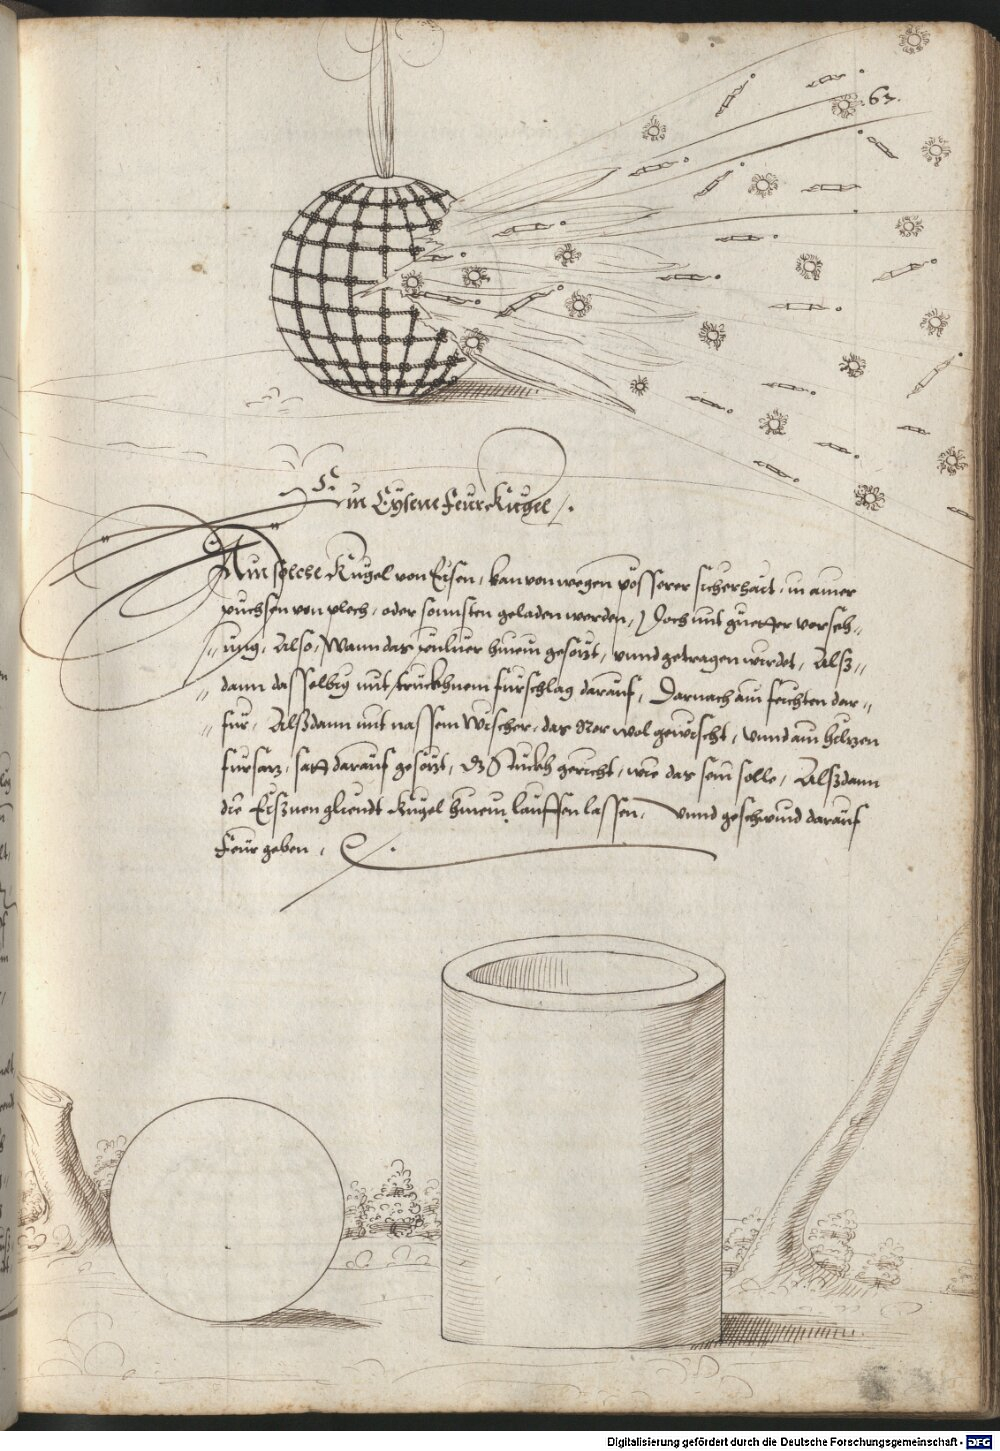 63.
Ein Eysene Feur Kugel /.
Ain solche Kugel von Eisen, kan von wegen pösserer sicherhait, in ainer
puchsen von plech, oder sonnsten geladen werden, Doch mit gueter verseh„
„ung, Also, Wann das puluer hinein gesetzt, vnnd getragen wirdet, Alß„
„dann dasselbig mit truckhnem fürschlag darauf, Darnach ain feichten dar„
„für, Alßdann mit nassem Wischer, das Ror wol gewischt, vnnd ain hiltzen
fürsatz, satt darauf gesetzt, Dz Stuckh gericht, wie das sein solle, Alßdann
die Eisznen gliendt Kugel hinein lauffen lassen, vnnd geschwind darauf
Feur geben,
Digitalisierung gefördert durch die Deutsche Forschungsgemeinschaft - DFG